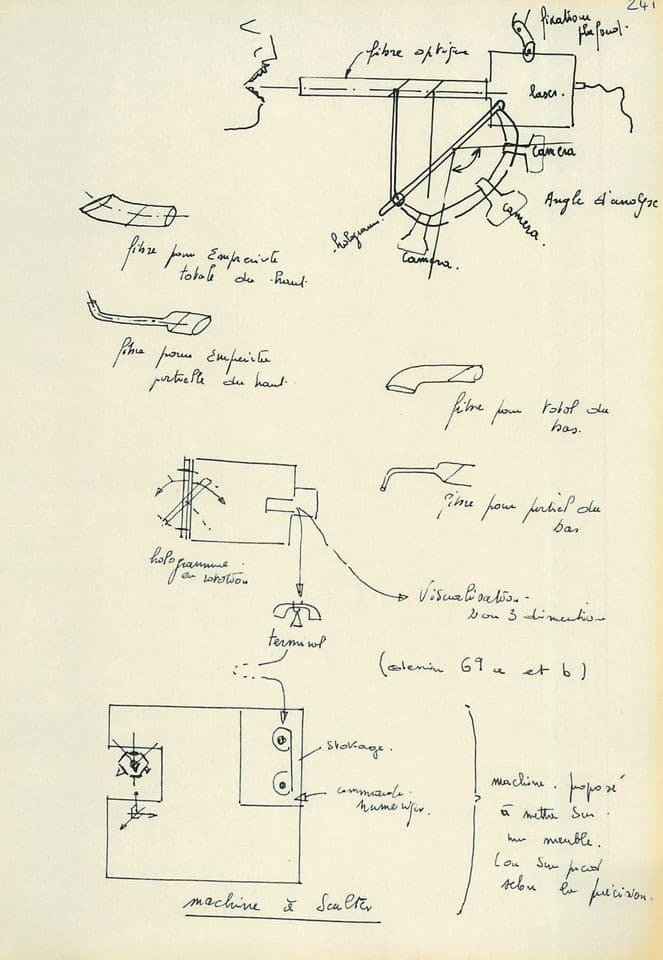 241
fixation
plafond.
fibre optique
laser.
camera
Angle d'analyse
camera.
hologramme
camera.
fibre pour Empreinte
totale du haut
fibre pour Empreinte
partielle du haut.
fibre pour total du
bas.
fibre pour partiel du
bas
hologramme
en rotation
Visualisation
2 ou 3 dimention
terminal
(dessin 69 a et b)
stockage.
commande
numeriqu.
machine proposé
à mettre sur
un meuble.
(ou sur pied
selon la précision.
machine à Sculter